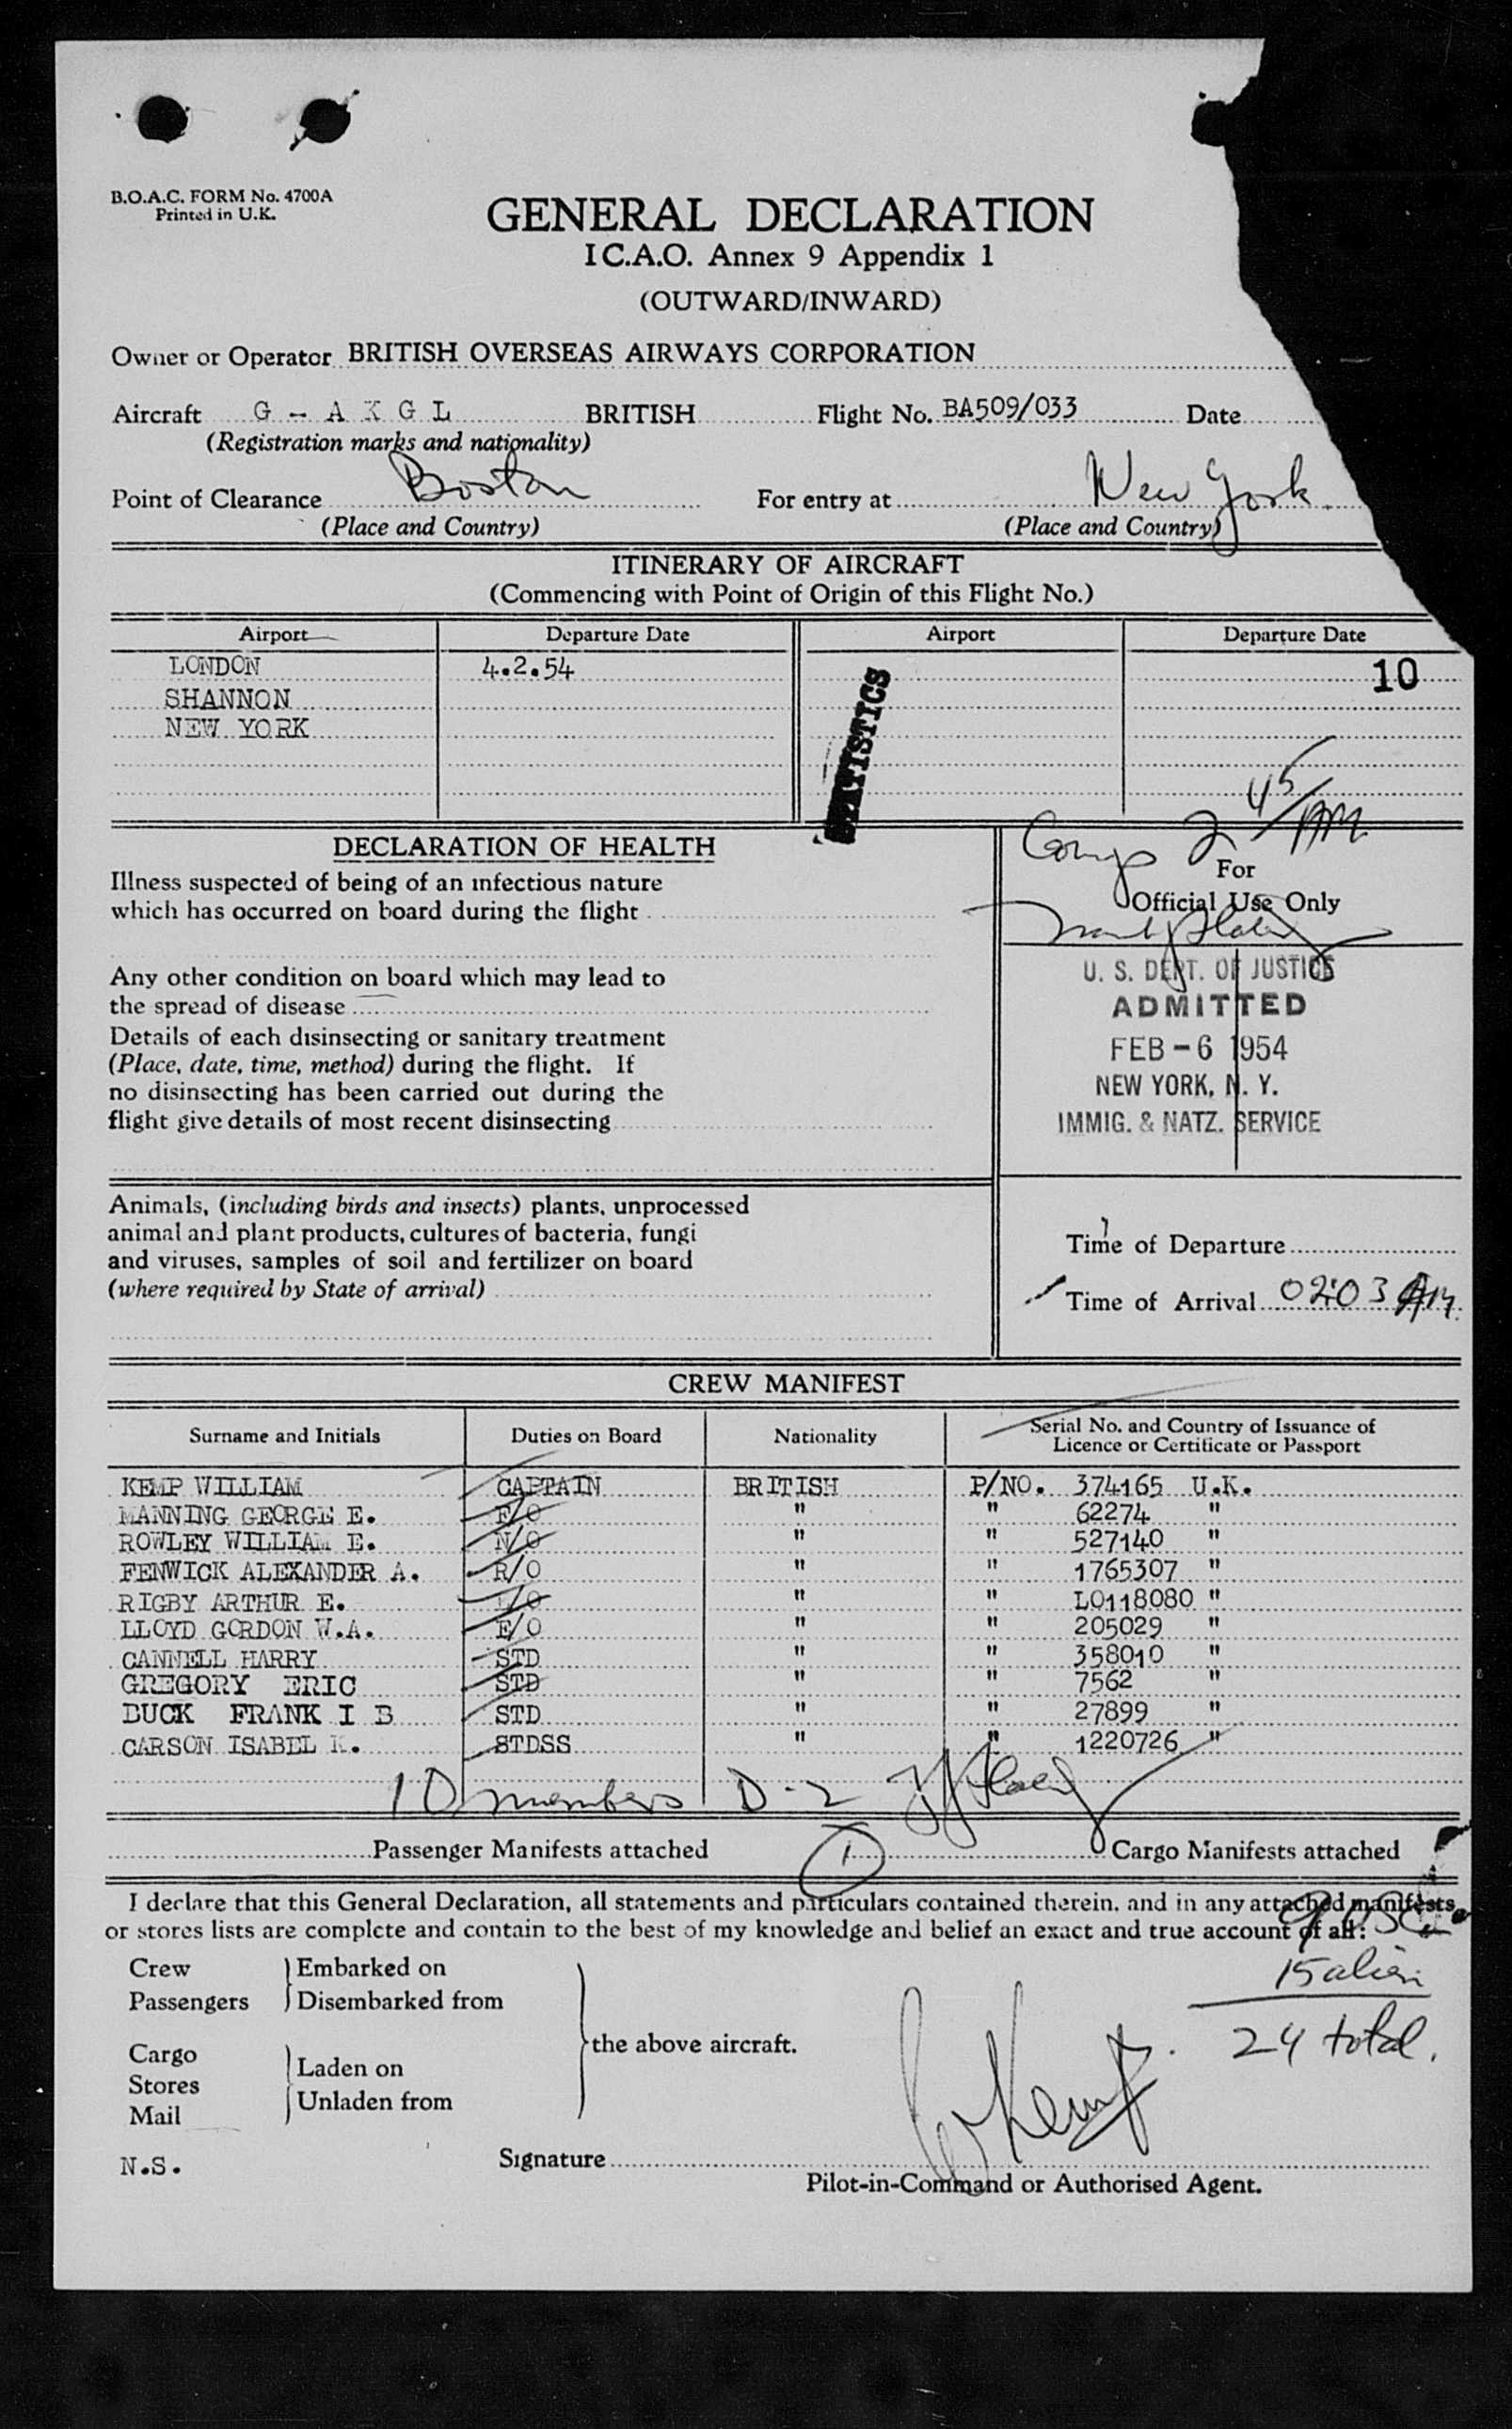 B.O.A.C. FORM No. 4700A
Printed in U.K.
GENERAL DECLARATION
I C.A.O. Annex 9 Appendix 1
(OUTWARD/INWARD)
Owner or Operator BRITISH OVERSEAS AIRWAYS CORPORATION
Aircraft G - A K G L BRITISH Flight No. BA509/033 Date
(Registration marks and nationality)
Point of Clearance Boston For entry at New York
(Place and Country) (Place and Country)
ITINERARY OF AIRCRAFT
(Commencing with Point of Origin of this Flight No.)
Airport Departure Date Airport Departure Date
LONDON 4.2.54 10
SHANNON
NEW YORK
STATISTICS
2 45/AM
DECLARATION OF HEALTH
For
Official Use Only
Illness suspected of being of an infectious nature
which has occurred on board during the flight
Any other condition on board which may lead to
the spread of disease
Details of each disinsecting or sanitary treatment
(Place, date, time, method) during the flight. If
no disinsecting has been carried out during the
flight give details of most recent disinsecting
U. S. DEPT. OF JUSTICE
ADMITTED
FEB - 6 1954
NEW YORK, N. Y.
IMMIG. & NATZ. SERVICE
Animals, (including birds and insects) plants, unprocessed
animal and plant products, cultures of bacteria, fungi
and viruses, samples of soil and fertilizer on board
(where required by State of arrival)
Time of Departure
Time of Arrival 0203 AM.
CREW MANIFEST
Surname and Initials Duties on Board Nationality Serial No. and Country of Issuance of
Licence or Certificate or Passport
KEMP WILLIAM CAPTAIN BRITISH P/NO. 374165 U.K.
MANNING GEORGE E. F/O " " 62274 "
ROWLEY WILLIAM E. N/O " " 527140 "
FENWICK ALEXANDER A. R/O " " 1765307 "
RIGBY ARTHUR E. /O " " LO118080 "
LLOYD GORDON W.A. E/O " " 205029 "
CANNELL HARRY STD " " 358010 "
GREGORY ERIC STD " " 7562 "
BUCK FRANK I B STD " " 27899 "
CARSON ISABEL K. STDSS " " 1220726 "
10 members D-2
Passenger Manifests attached 1 Cargo Manifests attached
I declare that this General Declaration, all statements and particulars contained therein, and in any attached manifests
or stores lists are complete and contain to the best of my knowledge and belief an exact and true account of all:
9 USC
15 alien
24 total.
Crew Embarked on
Passengers Disembarked from
the above aircraft.
Cargo
Stores Laden on
Mail Unladen from
W Kemp.
N.S. Signature
Pilot-in-Command or Authorised Agent.